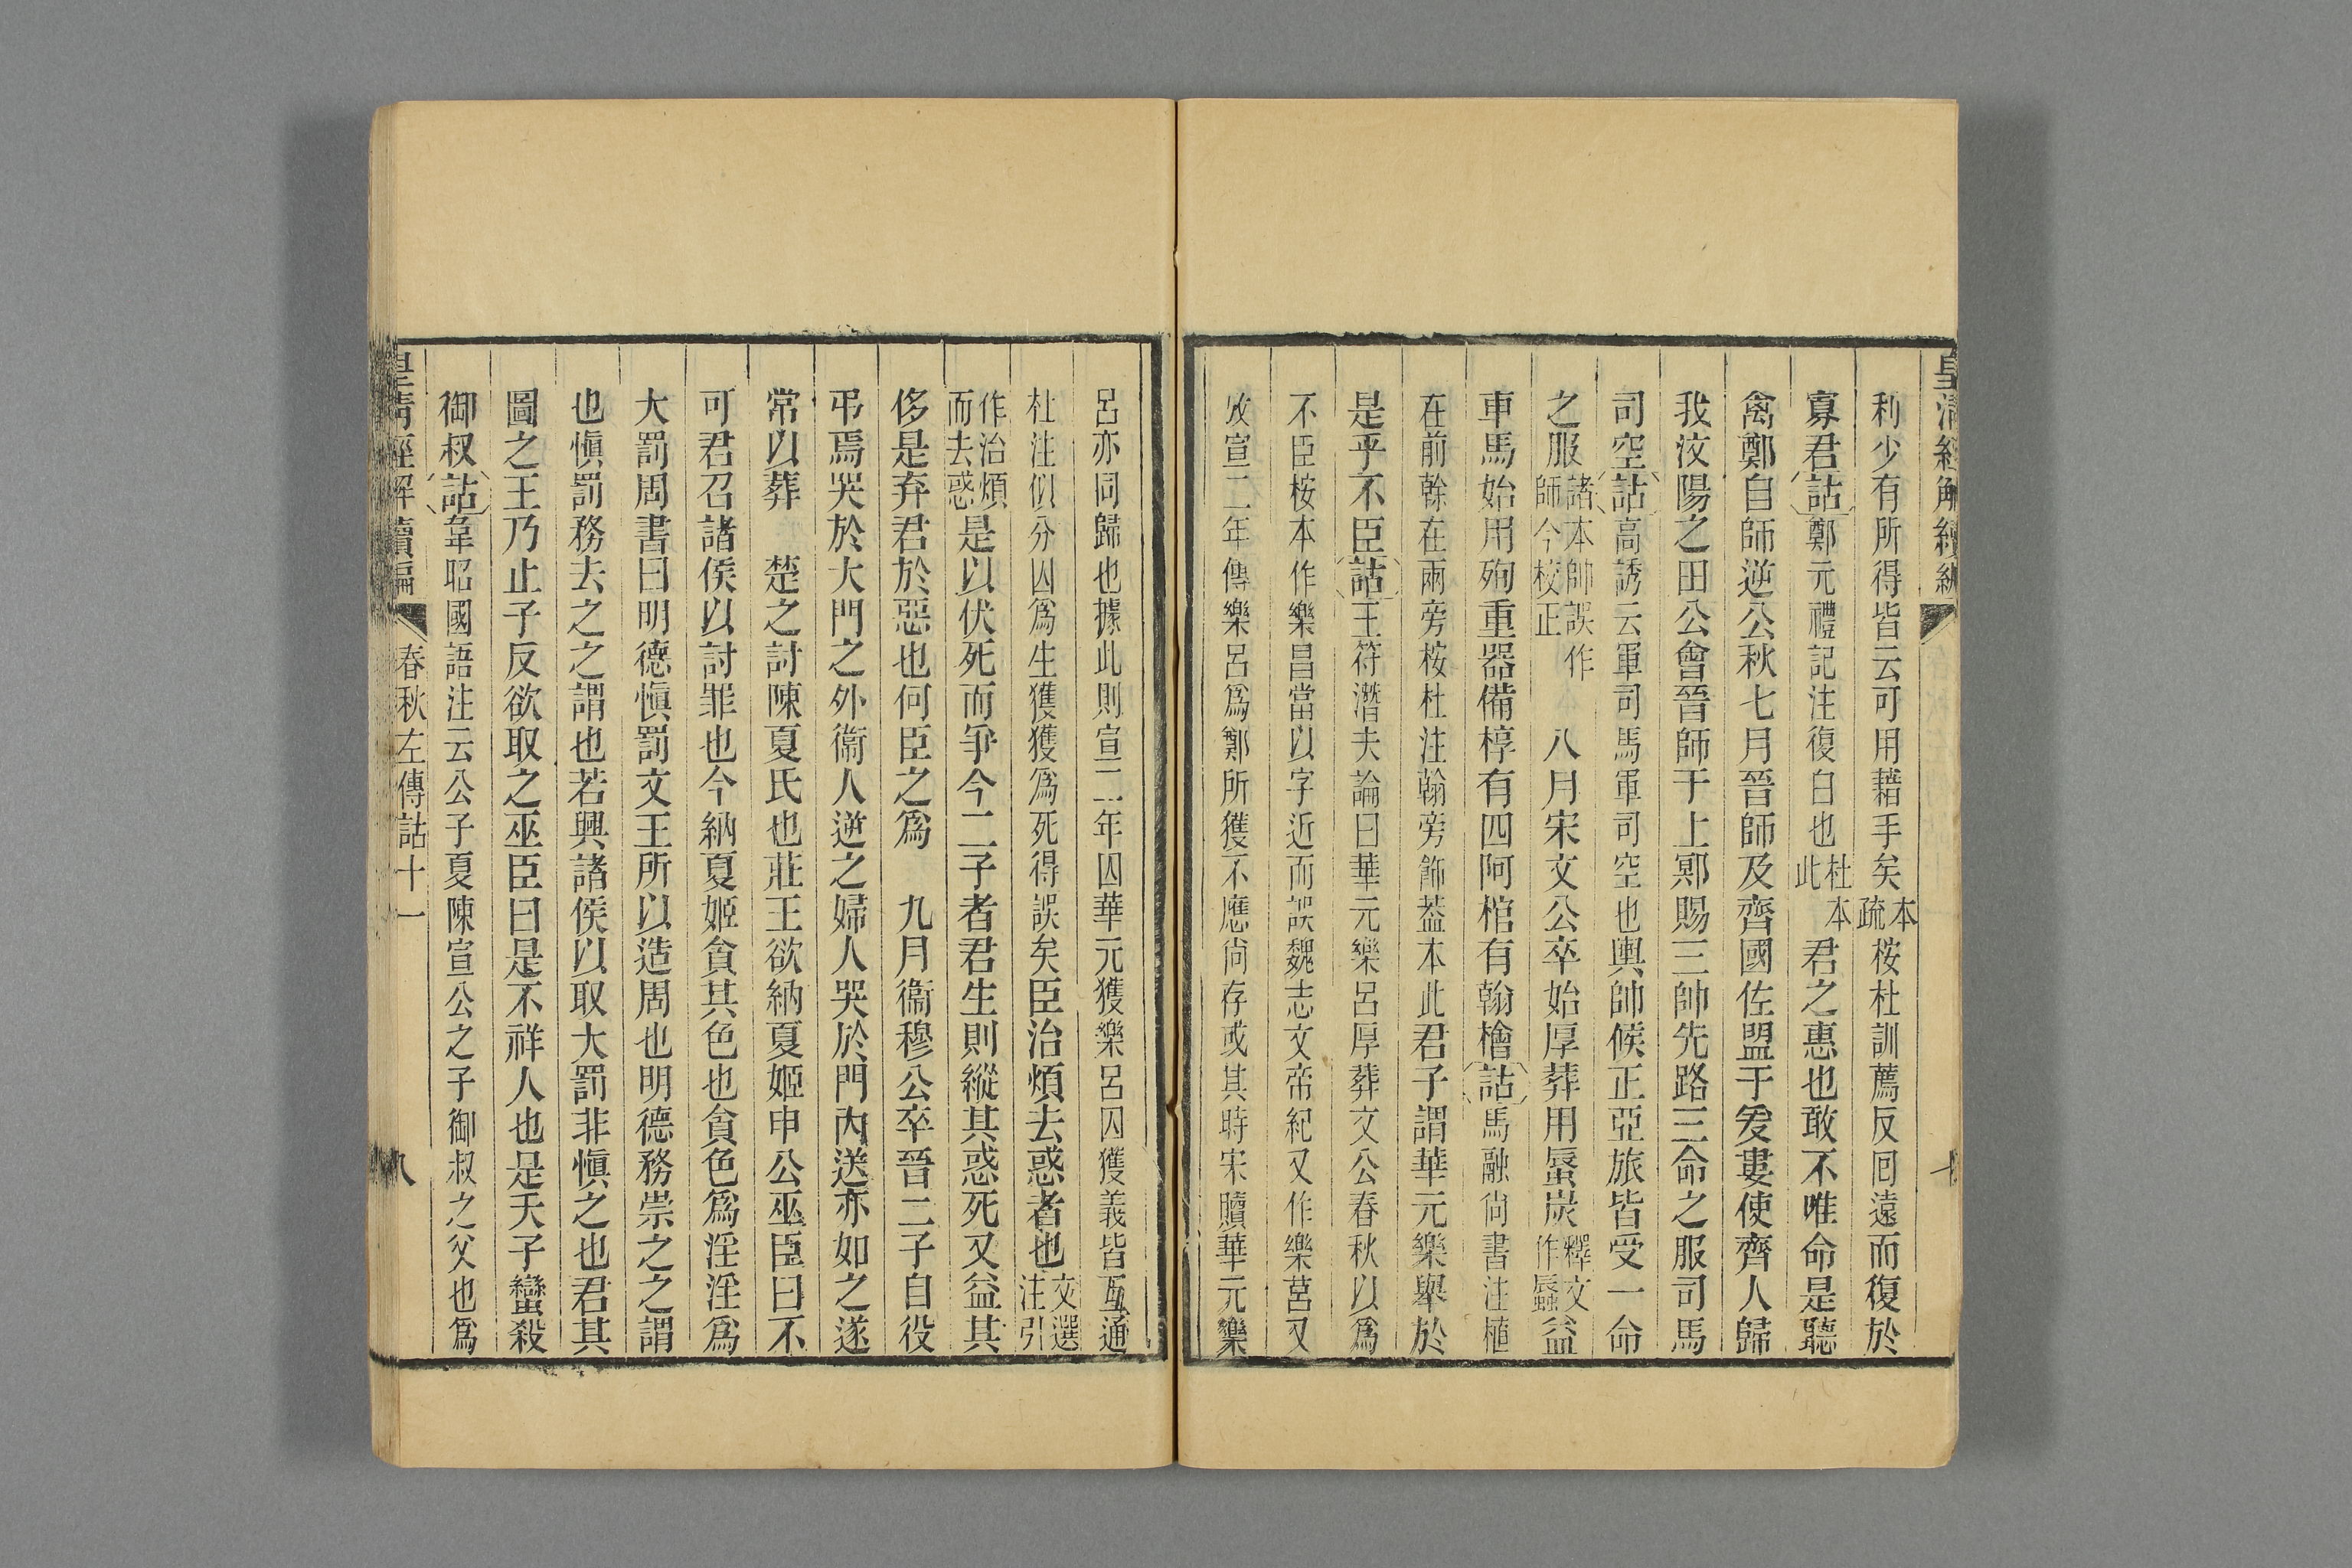 皇清經解續編
利少有所得皆云可用藉手矣本疏桉杜訓薦反回遠而復於
寡君詁鄭元禮記注復白也杜本此君之惠也敢不唯命是聽
禽鄭自師逆公秋七月晉師及齊國佐盟于爰婁使齊人歸
我汶陽之田公會晉師于上鄍賜三帥先路三命之服司馬
司空詁高誘云軍司馬軍司空也輿帥候正亞旅皆受一命
之服諸本帥誤作師今校正 八月宋文公卒始厚葬用蜃炭釋文作蜄益
車馬始用殉重器備椁有四阿棺有翰檜詁馬融尚書注植
在前榦在兩旁桉杜注翰旁飾葢本此君子謂華元樂舉於
是乎不臣詁王符潛夫論曰華元樂呂厚葬文公春秋以爲
不臣桉本作樂呂當以字近而誤魏志文帝紀又作樂莒又
攷宣二年傳樂呂爲鄭所獲不應尚存或其時宋贖華元樂
呂亦同歸也據此則宣二年囚華元獲樂呂囚獲義皆互通
杜注似分囚爲生獲獲爲死得誤矣臣治煩去惑者也文選注引
作治煩而去惑是以伏死而爭今二子者君生則縱其惑死又益其
侈是弃君於惡也何臣之爲 九月衞穆公卒晉二子自役
弔焉哭於大門之外衞人逆之婦人哭於門內送亦如之遂
常以葬 楚之討陳夏氏也莊王欲納夏姬申公巫臣曰不
可君召諸侯以討罪也今納夏姬貪其色也貪色爲淫淫爲
大罰周書曰明德愼罰文王所以造周也明德務崇之之謂
也愼罰務去之之謂也若興諸侯以取大罰非愼之也君其
圖之王乃止子反欲取之巫臣曰是不祥人也是夭子蠻殺
御叔詁韋昭國語注云公子夏陳宣公之子御叔之父也爲
皇清經解續編 春秋左傳詁十一 八